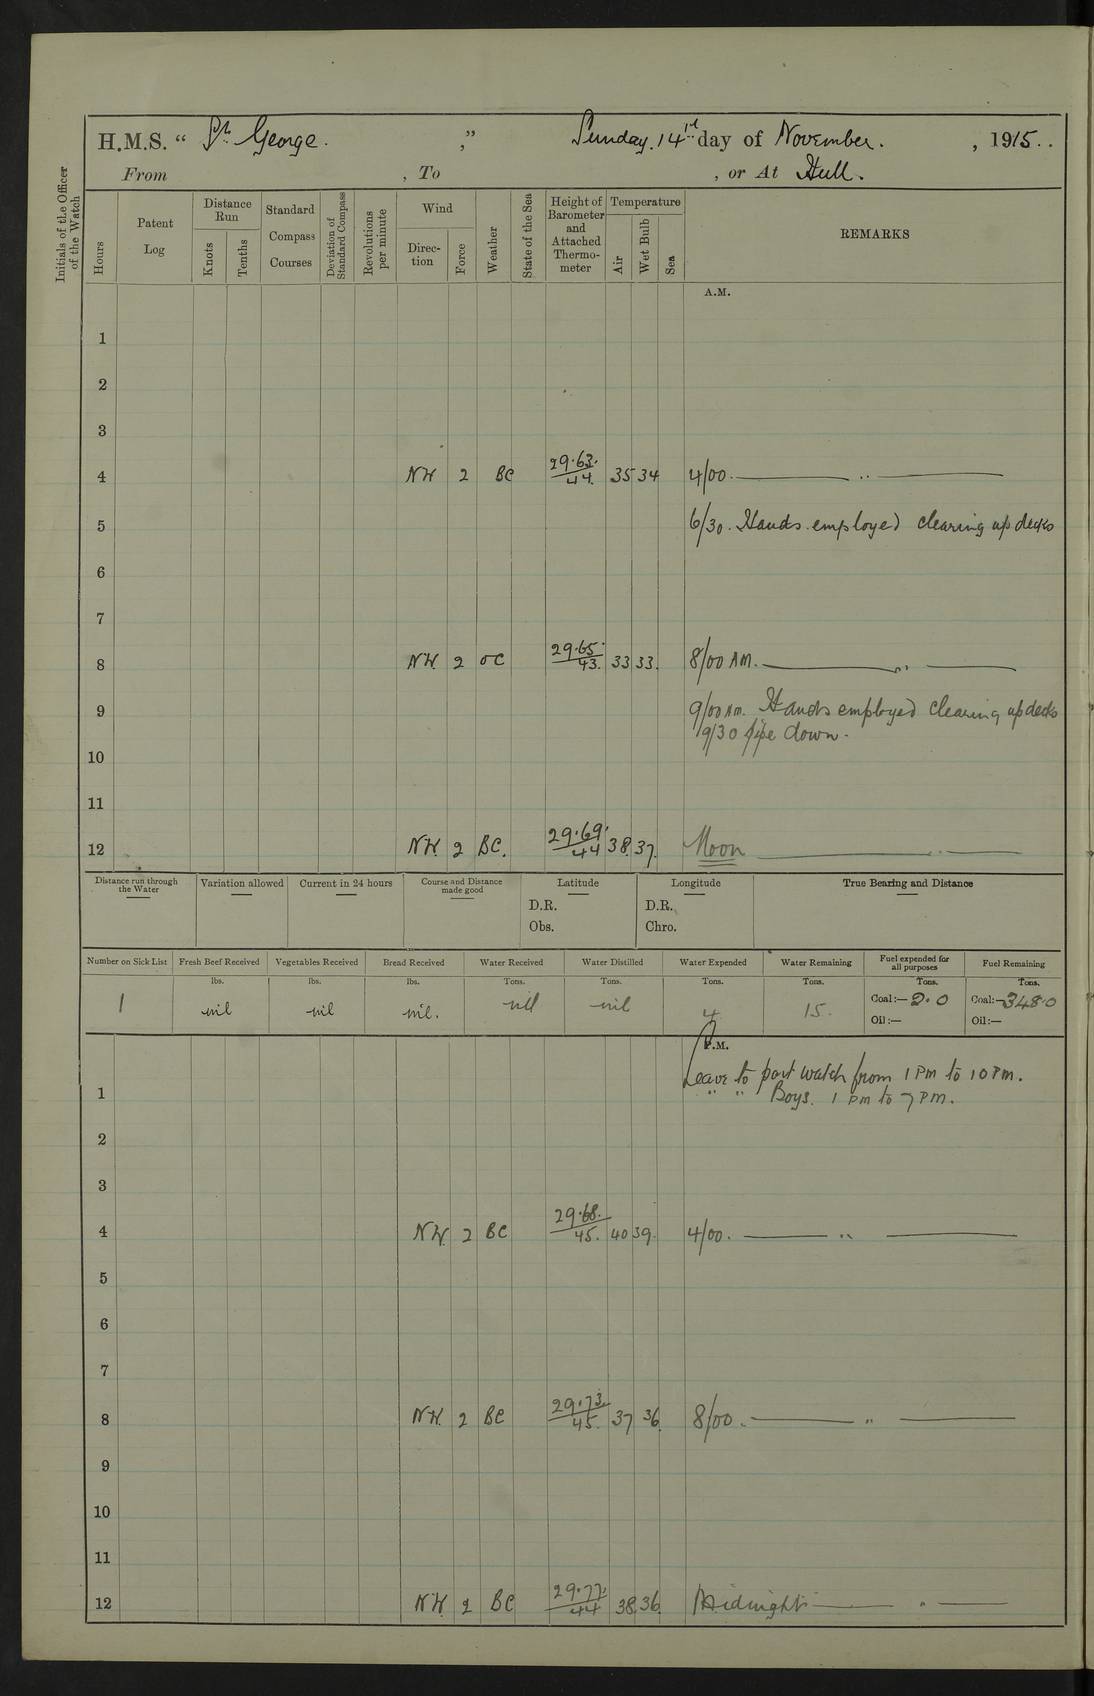 H.M.S. “ St. George. ,” Sunday. 14th day of November. , 1915..
From , To , or At Hull.
Initials of the Officer of the Watch
Hours
Patent Log
Distance Run
Knots
Tenths
Standard Compass Courses
Deviation of Standard Compass
Revolutions per minute
Wind
Direction
Force
Weather
State of the Sea
Height of Barometer and Attached Thermometer
Temperature
Air
Wet Bulb
Sea
REMARKS
A.M.
1
2
3
4 NW 2 BC 29.63. 44. 35 34 4/00. ——— ,, ———
5 6/30. Hands employed clearing up decks
6
7
8 NW. 2 OC 29.65. 43. 33 33. 8/00 AM. ——— ,, ———
9 9/00 AM. Hands employed clearing up decks
9/30 pipe down.
10
11
12 NW. 2 BC. 29.69. 44 38. 37. Noon ——— ,, ———
Distance run through the Water
Variation allowed
Current in 24 hours
Course and Distance made good
Latitude
D.R.
Obs.
Longitude
D.R.
Chro.
True Bearing and Distance
Number on Sick List
1
Fresh Beef Received
lbs.
nil
Vegetables Received
lbs.
nil
Bread Received
lbs.
nil.
Water Received
Tons.
nil
Water Distilled
Tons.
nil
Water Expended
Tons.
4
Water Remaining
Tons.
15.
Fuel expended for all purposes
Tons.
Coal:— 2.0
Oil:—
Fuel Remaining
Tons.
Coal:— 348.0
Oil:—
P.M.
Leave to port watch from 1 PM to 10 PM.
1 " " Boys. 1 PM to 7 PM.
2
3
4 NW. 2 BC 29.68. 45. 40 39. 4/00. ——— ,, ———
5
6
7
8 NW. 2 BC 29.73. 45. 37 36. 8/00. ——— ,, ———
9
10
11
12 NW. 2 BC 29.77. 44 38. 36. Midnight ——— ,, ———